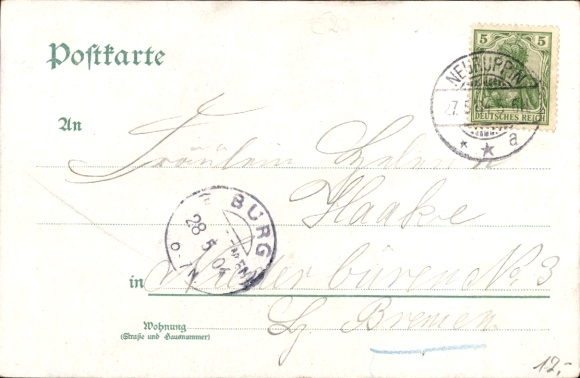 Postkarte
5 5
DEUTSCHES REICH
NEURUPPIN
27.5
* * a
An
Fräulein Helene
Haake
BURG
28 5 04
in Niederbüren No. 3
Bz. Bremen.
Wohnung
(Straße und Hausnummer)
12,-